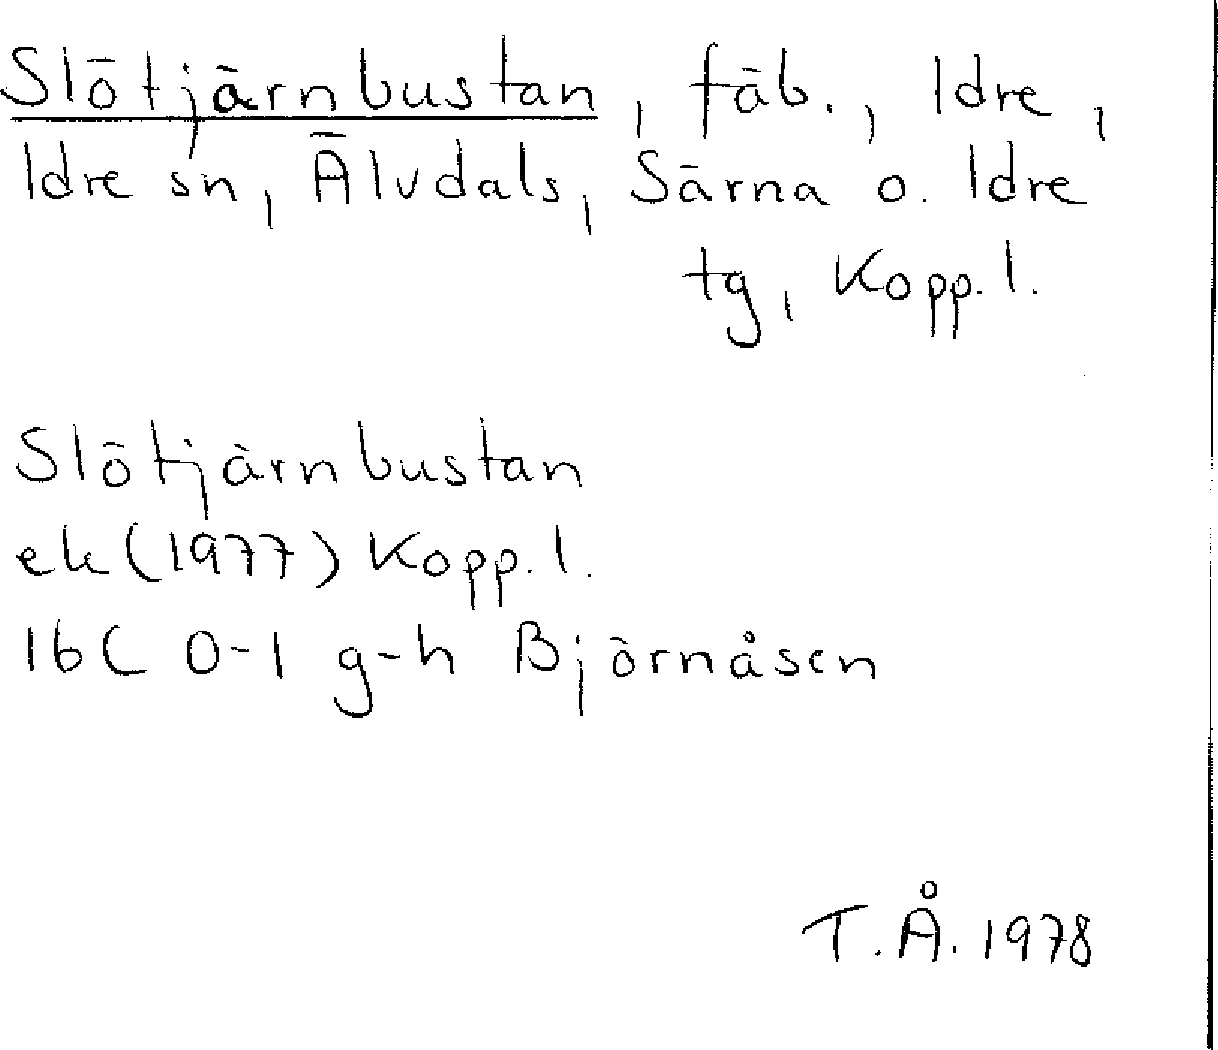 Slötjärnbustan, fäb., Idre,
Idre sn, Älvdals, Särna o. Idre
tg, Kopp. l.
Slötjärnbustan
ek (1977) Kopp. l.
16C 0-1 g-h Björnåsen
T.Å. 1978